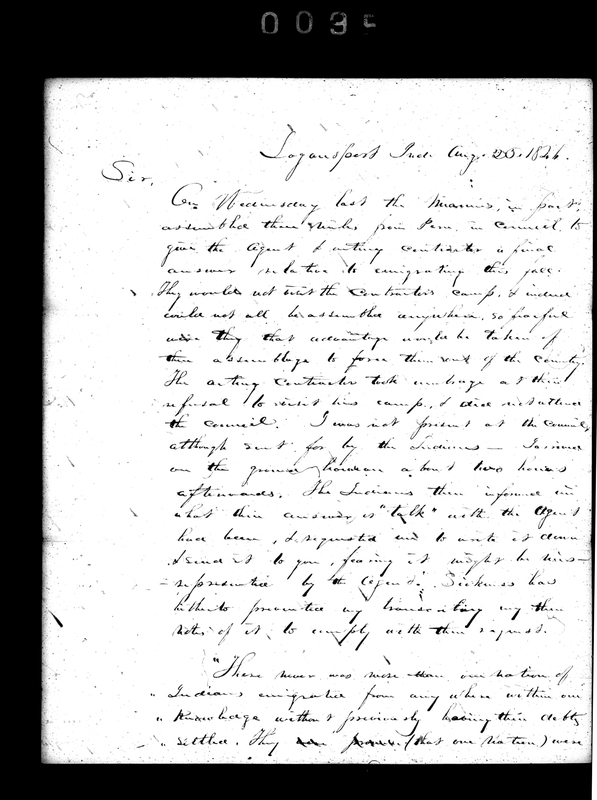 0035
Logansport Ind. Aug. 20. 1846.
Sir,
On Wednesday last the Miamies, in part,
assembled three miles from Peru in council, to
give the Agent & acting contractor a final
answer relative to emigrating this fall.
They would not visit the Contractor's camp, & indeed
could not all be assembled anywhere, so fearful
were they that advantage would be taken of
their assemblage to force them out of the country.
The acting Contractor took umbrage at their
refusal to visit his camp, & did not attend
the council. I was not present at the council,
although sent for by the Indians — I arrived
on the ground however about two hours
afterwards. The Indians then informed me
what their answer, or "talk" with the Agent
had been, & requested me to write it down
& send it to you, fearing it might be mis-
represented by the Agent. Sickness has
hitherto prevented my transcribing my
notes of it, to comply with their request.
"There never was more than one nation of
"Indians emigrated from any where within our
"knowledge without previously having their debts
"settled. They (that one nation) were